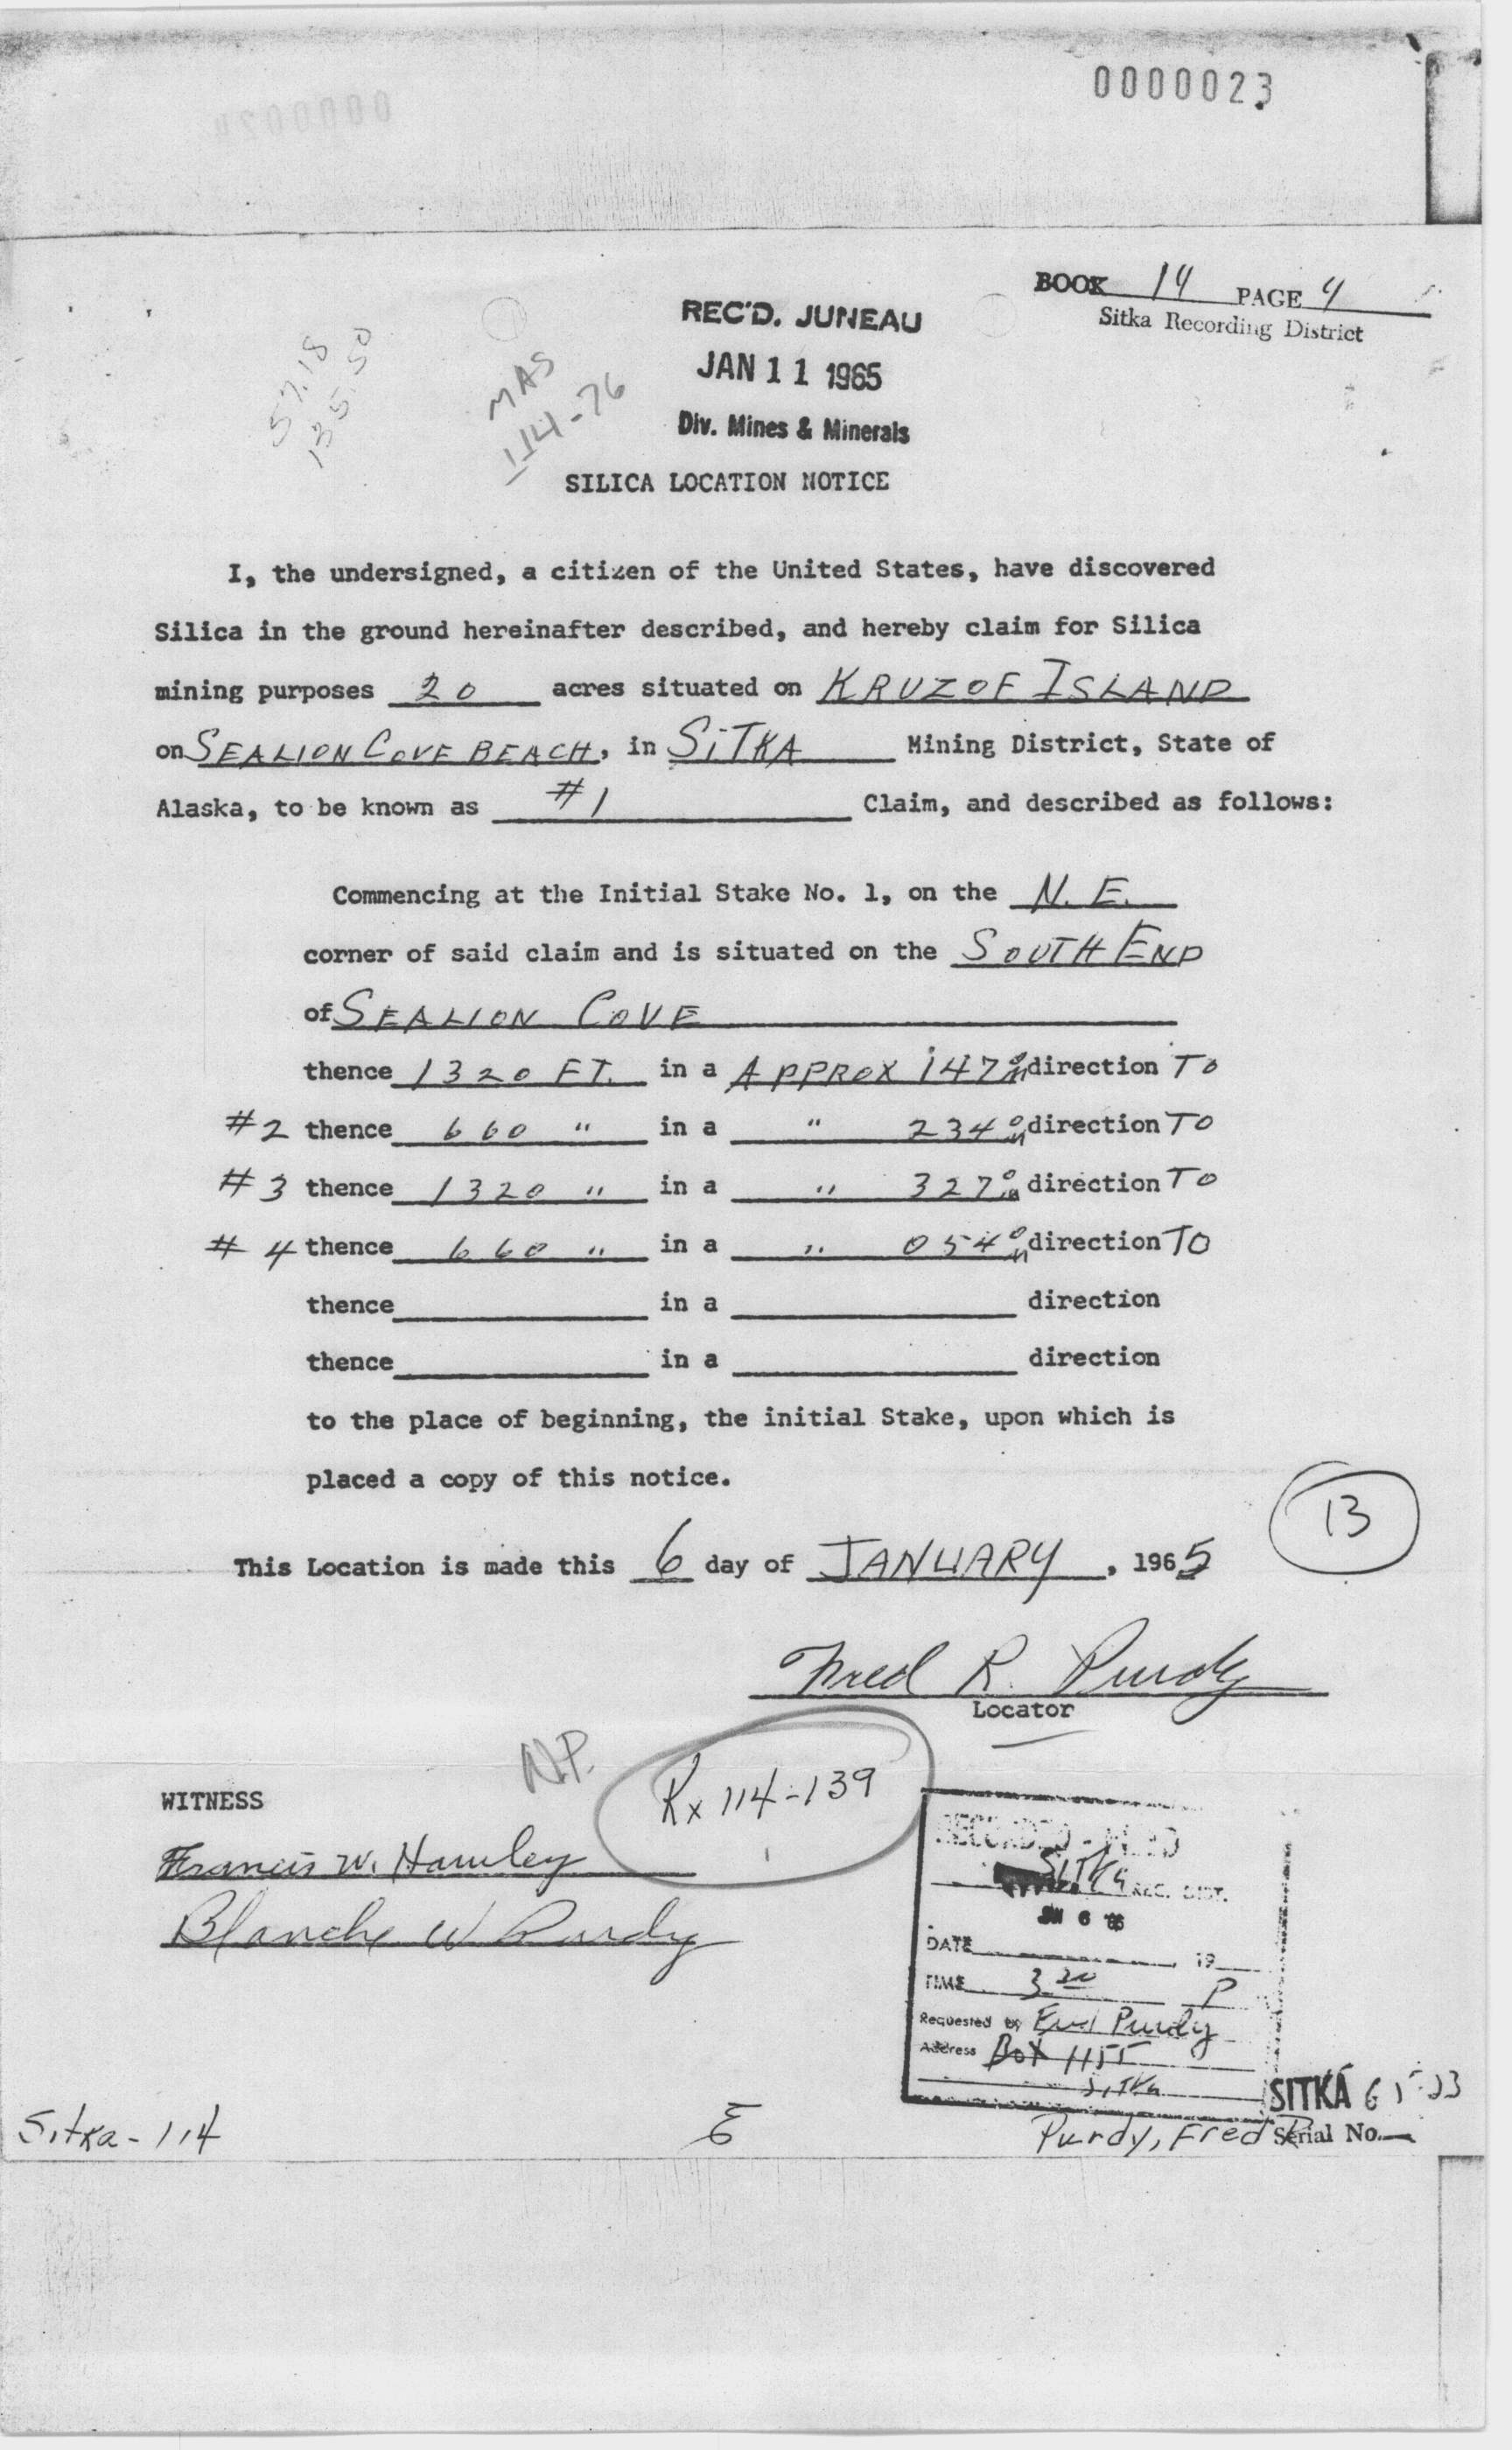 0000023
BOOK 14 PAGE 4
Sitka Recording District
REC'D. JUNEAU
JAN 11 1965
Div. Mines & Minerals
57.18
135.50
MAS
114-76
SILICA LOCATION NOTICE
I, the undersigned, a citizen of the United States, have discovered
Silica in the ground hereinafter described, and hereby claim for Silica
mining purposes 20 acres situated on KRUZOF ISLAND
on SEALION COVE BEACH, in SITKA Mining District, State of
Alaska, to be known as #1 Claim, and described as follows:
Commencing at the Initial Stake No. 1, on the N.E.
corner of said claim and is situated on the SOUTH END
of SEALION COVE
thence 1320 FT. in a APPROX 147° M direction TO
#2 thence 660 " in a " 234° M direction TO
#3 thence 1320 " in a " 327° M direction TO
#4 thence 660 " in a " 054° M direction TO
thence in a direction
thence in a direction
to the place of beginning, the initial Stake, upon which is
placed a copy of this notice.
13
This Location is made this 6 day of JANUARY, 1965
Fred R. Purdy
Locator
N.P.
Kx 114-139
WITNESS
Francis W. Hamley
Blanche W Purdy
RECORDED - FILED
SITKA REC. DIST.
DATE 19
TIME 3 20 P
Requested by Fred Purdy
Address Box 1155
Sitka
SITKA 65-23
Serial No.
Purdy, Fred R
Sitka-114
E